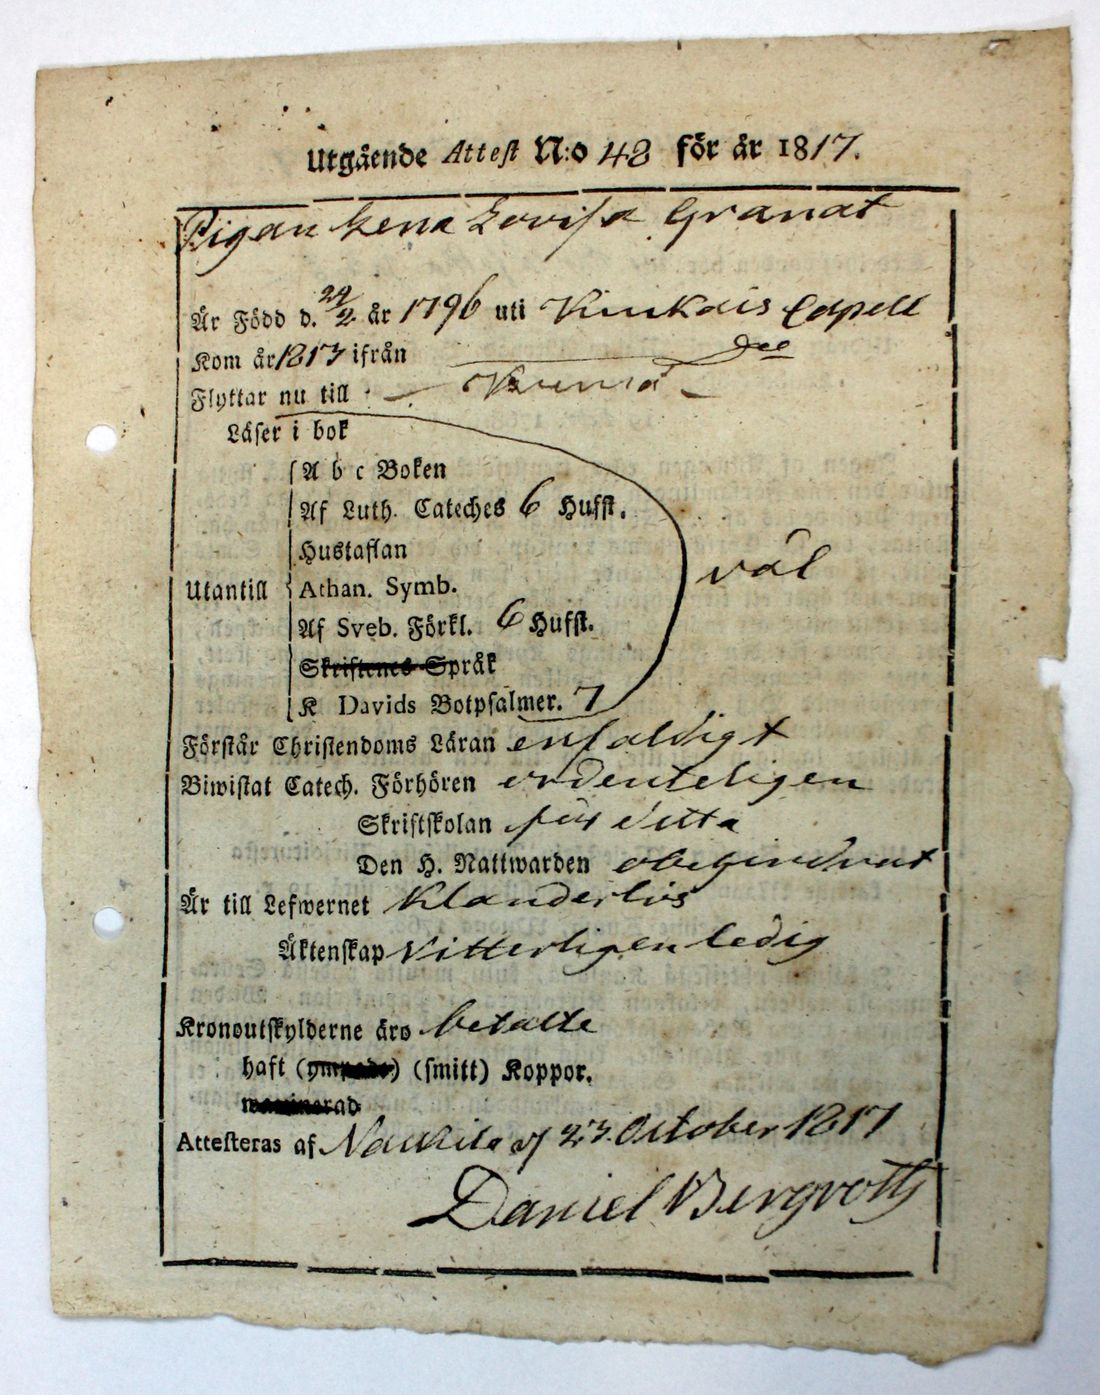 Utgående Attest N:o 48 för år 1817.
Pigan Lena Lovisa Granat
Är Född d. 24/2 år 1796 uti Kiukais Capell
Kom år 1813 ifrån
Flyttar nu till
Läser i bok
A b c Boken
Af Luth. Cateches 6 Hufst.
Hustaflan
Utantill Athan. Symb.
Af Sveb. Förkl. 6 Hufst.
Skriftenes Språk
K Davids Botpsalmer. 7
väl
Förstår Christendoms Läran enfaldigt
Biwistat Catech. Förhören ordenteligen
Skriftskolan för detta
Den H. Nattwarden obehindrat
Är till Lefwernet Klanderlös
Äktenskap Vitterligen ledig
Kronoutskylderne äro betalte
haft (ympade) (smitt) Koppor.
waccinerad
Attesteras af Nakkila d 23. October 1817
Daniel Bergroth